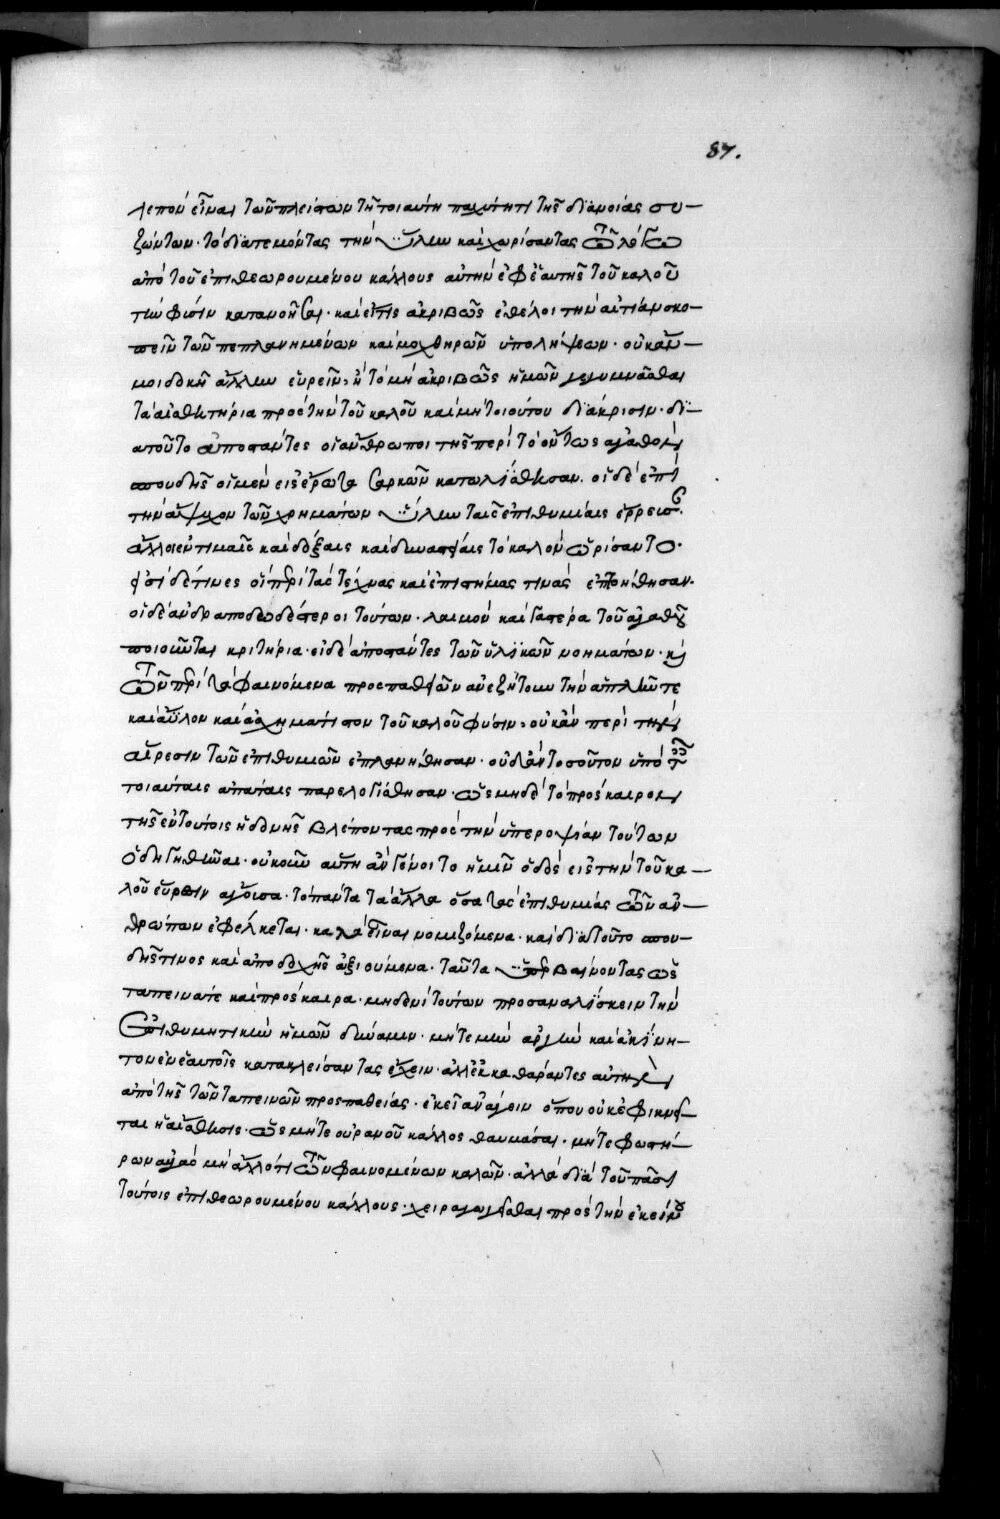 87.
λεπὸν εἶναι τῶν πλείστων τῇ τοιαύτῃ παχύτητι τῆς διανοίας συ-
ζώντων. τὸ διατεμόντας τὴν ὕλην καὶ χωρίσαντας τῷ λόγῳ
ἀπὸ τοῦ ἐπιθεωρουμένου κάλλους αὐτὴν ἐφ' ἑαυτῆς τοῦ καλοῦ
τὴν φύσιν κατανοῆσαι. καὶ εἴ τις ἀκριβῶς ἐθέλοι τὴν αἰτίαν σκο-
πεῖν τῶν πεπλανημένων καὶ μοχθηρῶν ὑπολήψεων. οὐκ ἄν
μοι δοκῇ ἄλλην εὑρεῖν, ἢ τὸ μὴ ἀκριβῶς ἡμῶν γεγυμνᾶσθαι
τὰ αἰσθητήρια πρὸς τὴν τοῦ καλοῦ καὶ μὴ τοιούτου διάκρισιν. δι-
ατοῦτο ἀποστάντες οἱ ἄνθρωποι τῆς περὶ τὸ ὄντως ἀγαθὸν
σπουδῆς οἱ μὲν εἰς ἔρωτα σαρκῶν κατωλίσθησαν. οἱ δὲ ἐπὶ
τὴν ἄψυχον τῶν χρημάτων ὕλην ταῖς ἐπιθυμίαις ἔρρεψαν.
ἄλλοι ἐν τιμαῖς καὶ δόξαις καὶ δυναστείαις τὸ καλὸν ὡρίσαντο.
εἰσὶ δέ τινες οἳ περὶ τὰς τέχνας καὶ ἐπιστήμας τινὰς ἐπτοήθησαν.
οἱ δὲ ἀνδραποδωδέστεροι τούτων. λαιμὸν καὶ γαστέρα τοῦ ἀγαθοῦ
ποιοῦνται κριτήρια. εἰ δὲ ἀποστάντες τῶν ὑλικῶν νοημάτων. καὶ
τῶν περὶ τὰ φαινόμενα προσπαθειῶν ἀνεζήτουν τὴν ἁπλῆν τε
καὶ ἄϋλον καὶ ἀσχημάτιστον τοῦ καλοῦ φύσιν, οὐκ ἂν περὶ τὴν
αἵρεσιν τῶν ἐπιθυμιῶν ἐπλανήθησαν. οὐδ' ἂν τοσοῦτον ὑπὸ τῶν
τοιαύταις ἀπάταις παρελογίσθησαν. ὡς μηδὲ τὸ πρόσκαιρον
τῆς ἐν τούτοις ἡδονῆς βλέποντας πρὸς τὴν ὑπεροψίαν τούτων
ὁδηγηθῆναι. οὐκοῦν αὕτη ἂν γένοιτο ἡμῖν ὁδὸς εἰς τὴν τοῦ κα-
λοῦ εὕρεσιν ἄγουσα. τὸ πάντα τὰ ἄλλα ὅσα τὰς ἐπιθυμίας τῶν ἀν-
θρώπων ἐφέλκεται. καλὰ εἶναι νομιζόμενα. καὶ διὰ τοῦτο σπου-
δῆς τινος καὶ ἀποδοχῆς ἀξιούμενα. ταῦτα ὑπερβαίνοντας ὡς
ταπεινά τε καὶ πρόσκαιρα. μηδενὶ τούτων προσαναλίσκειν τὴν
ἐπιθυμητικὴν ἡμῶν δύναμιν. μήτε μὴν ἀργὴν καὶ ἀκίνη-
τον ἐν ἑαυτοῖς κατακλείσαντας ἔχειν. ἀλλ' ἐκκαθάραντες αὐτὴν
ἀπὸ τῆς τῶν ταπεινῶν προσπαθείας. ἐκεῖ ἀνάγειν ὅπου οὐκ ἐφικνεῖ-
ται ἡ αἴσθησις. ὡς μήτε οὐρανοῦ κάλλος θαυμάσαι. μήτε φωστή-
ρων αὐγὰς μὴ ἄλλό τι τῶν φαινομένων καλῶν. ἀλλὰ διὰ τοῦ πᾶσι
τούτοις ἐπιθεωρουμένου κάλλους. χειραγωγεῖσθαι πρὸς τὴν ἐκείνου